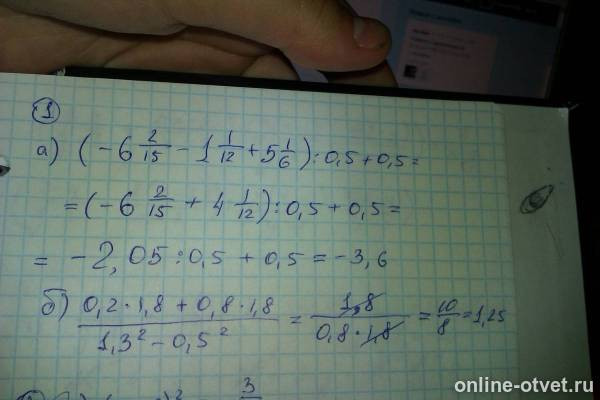 1
а) (-6 2/15 - 1 1/12 + 5 1/6) : 0,5 + 0,5 =
= (-6 2/15 + 4 1/12) : 0,5 + 0,5 =
= -2,05 : 0,5 + 0,5 = -3,6
б) (0,2 · 1,8 + 0,8 · 1,8)/(1,3² - 0,5²) = 1,8/(0,8 · 1,8) = 10/8 = 1,25
online-otvet.ru